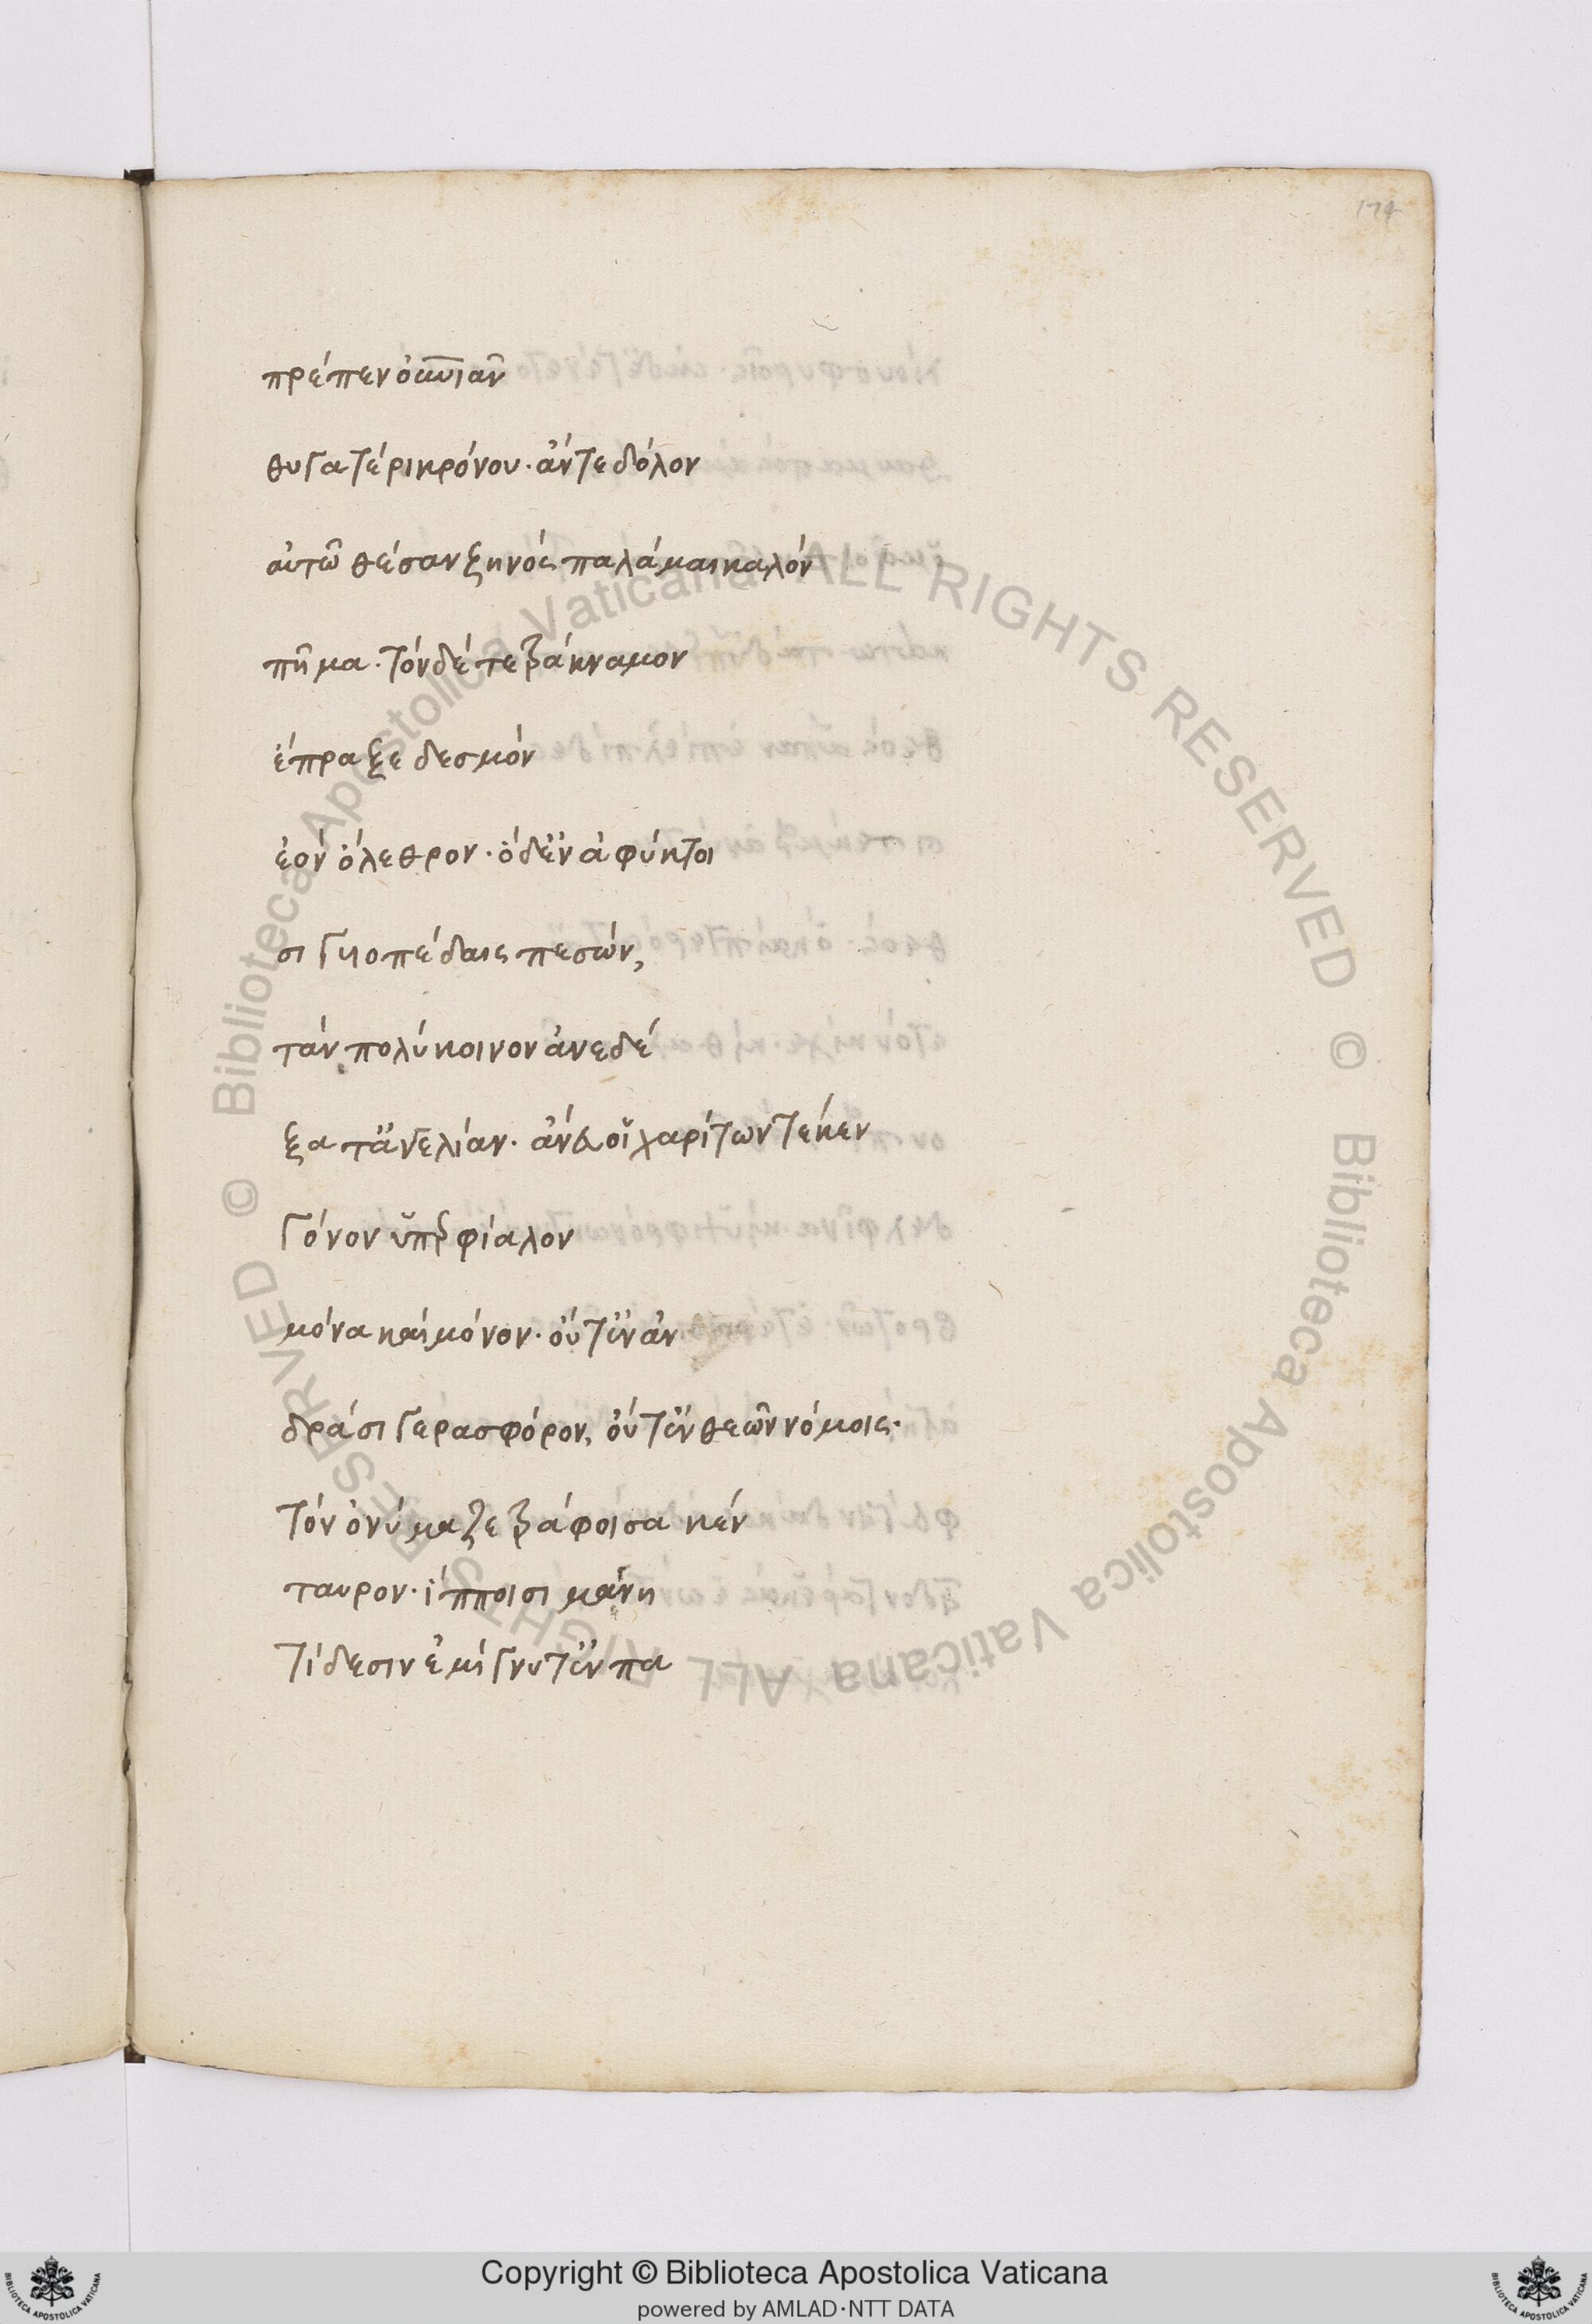 174
πρέπεν οὐρανιᾶν
θυγατέρι κρόνου· ἅν τε δόλον
αὐτῶ θέσαν ζηνὸς παλάμαι καλὸν
πῆμα· τὸν δὲ τετράκναμον
ἔπραξε δεσμὸν
ἑὸν ὄλεθρον· ὁ δ' ἐν ἀφύκτοι
σι γυιοπέδαις πεσών,
τὰν πολύκοινον ἀνεδέ
ξατ' ἀγγελίαν· ἄνευ οἷ χαρίτων τέκεν
γόνον ὑπερφίαλον
μόνα καὶ μόνον· οὔτ' ἐν ἀν
δράσι γερασφόρον, οὔτ' ἐν θεῶν νόμοις·
τὸν ὀνύμαζε τράφοισα κέν
ταυρον· ἵπποισι μαγνη
τίδεσιν ἐμίγνυτ' ἐν πα
© Biblioteca Apostolica Vaticana ALL RIGHTS RESERVED © Biblioteca Apostolica Vaticana ALL RIGHTS RESERVED
Copyright © Biblioteca Apostolica Vaticana
powered by AMLAD·NTT DATA
BIBLIOTECA APOSTOLICA VATICANA
BIBLIOTECA APOSTOLICA VATICANA